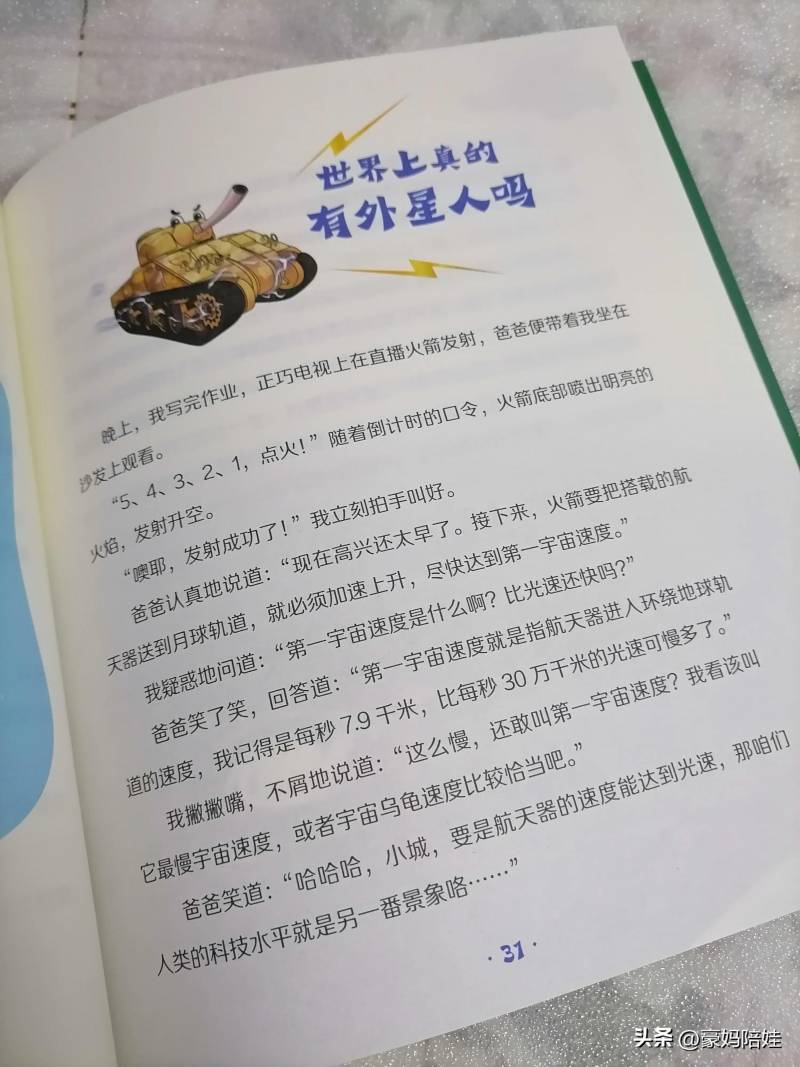 世界上真的
有外星人吗
晚上，我写完作业，正巧电视上在直播火箭发射，爸爸便带着我坐在
沙发上观看。
“5、4、3、2、1，点火！”随着倒计时的口令，火箭底部喷出明亮的
火焰，发射升空。
“噢耶，发射成功了！”我立刻拍手叫好。
爸爸认真地说道：“现在高兴还太早了。接下来，火箭要把搭载的航
天器送到月球轨道，就必须加速上升，尽快达到第一宇宙速度。”
我疑惑地问道：“第一宇宙速度是什么啊？比光速还快吗？”
爸爸笑了笑，回答道：“第一宇宙速度就是指航天器进入环绕地球轨
道的速度，我记得是每秒 7.9 千米，比每秒 30 万千米的光速可慢多了。”
我撇撇嘴，不屑地说道：“这么慢，还敢叫第一宇宙速度？我看该叫
它最慢宇宙速度，或者宇宙乌龟速度比较恰当吧。”
爸爸笑道：“哈哈哈，小城，要是航天器的速度能达到光速，那咱们
人类的科技水平就是另一番景象咯……”
·31·
头条 @豪妈陪娃